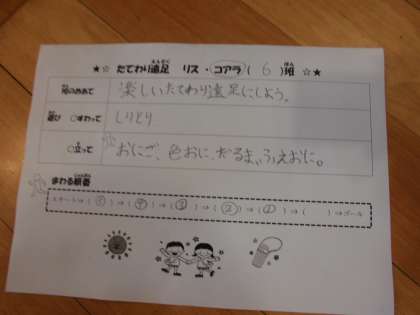 ★☆ たてわり遠足 リス・コアラ( 6 )班 ☆★
班のめあて 楽しいたてわり遠足にしよう。
遊び ○すわって しりとり
○立って おにご、色おに、だるま、ふえおに。
まわる順番
スタート⇒( 5 )⇒( 4 )⇒( 3 )⇒( 2 )⇒( 1 )⇒( )⇒ゴール